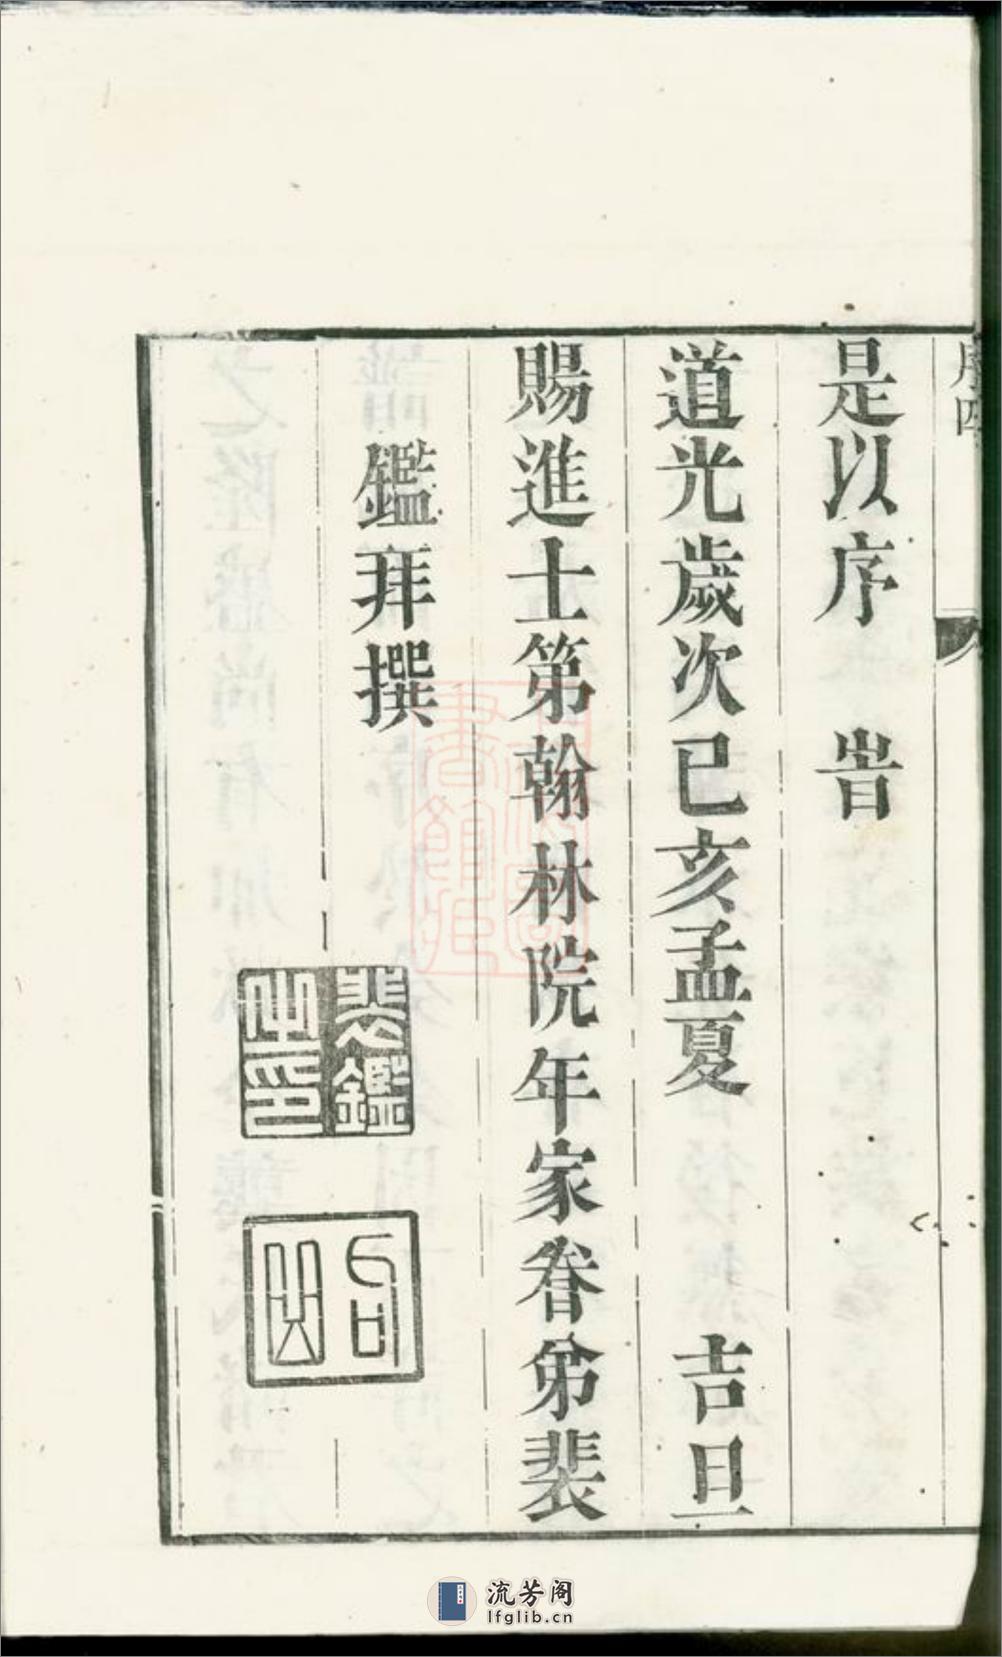 序四
是以序　旹
道光歲次己亥孟夏　吉旦
賜進士第翰林院年家眷弟裴
鑑拜撰
裴鑑
之印
流芳阁
lfglib.cn